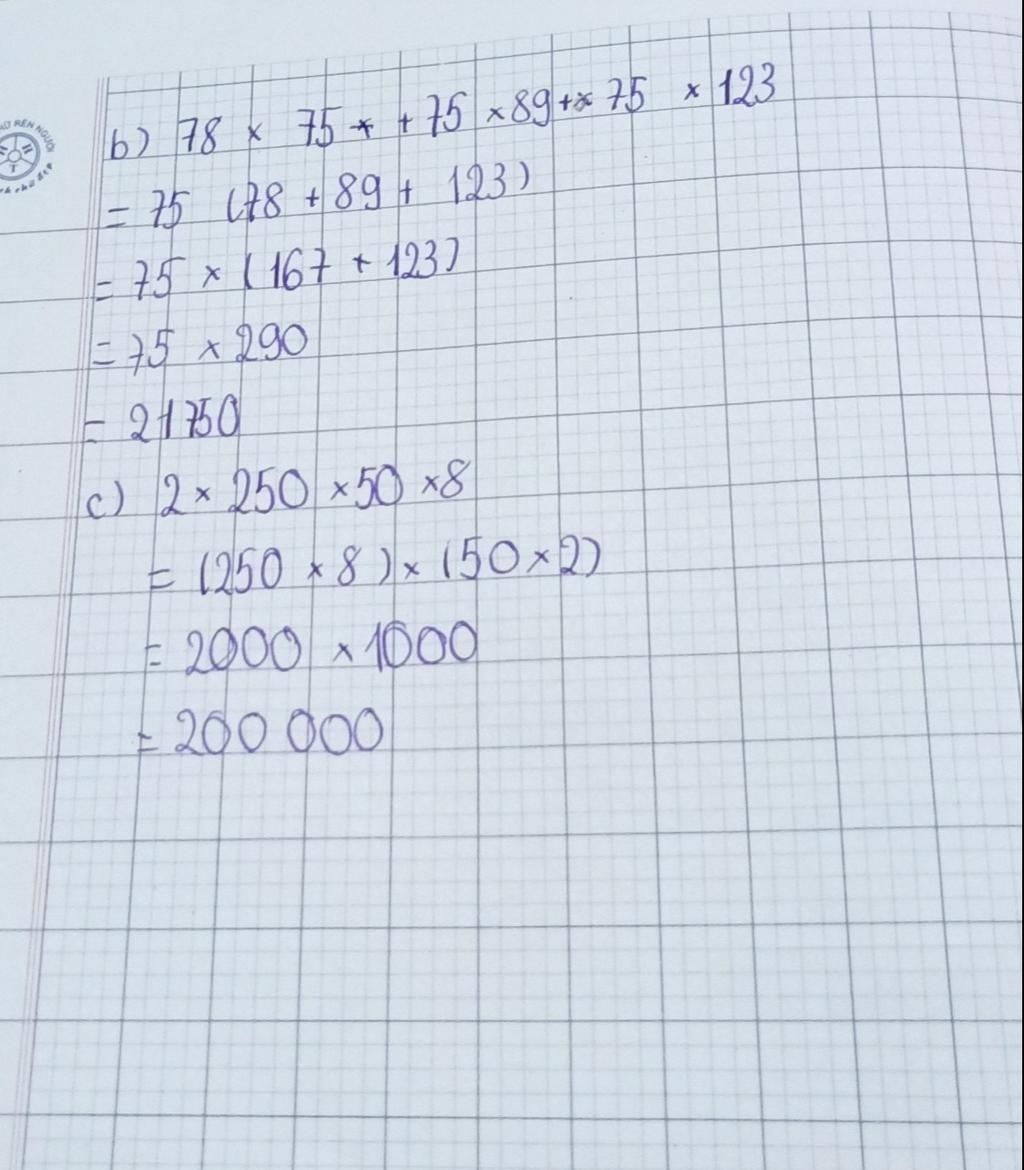 b) 78 × 75 × + 75 × 89 + × 75 × 123
= 75 (78 + 89 + 123)
= 75 × (167 + 123)
= 75 × 290
= 21750
c) 2 × 250 × 50 × 8
= (250 × 8) × (50 × 2)
= 2000 × 1000
= 200 000